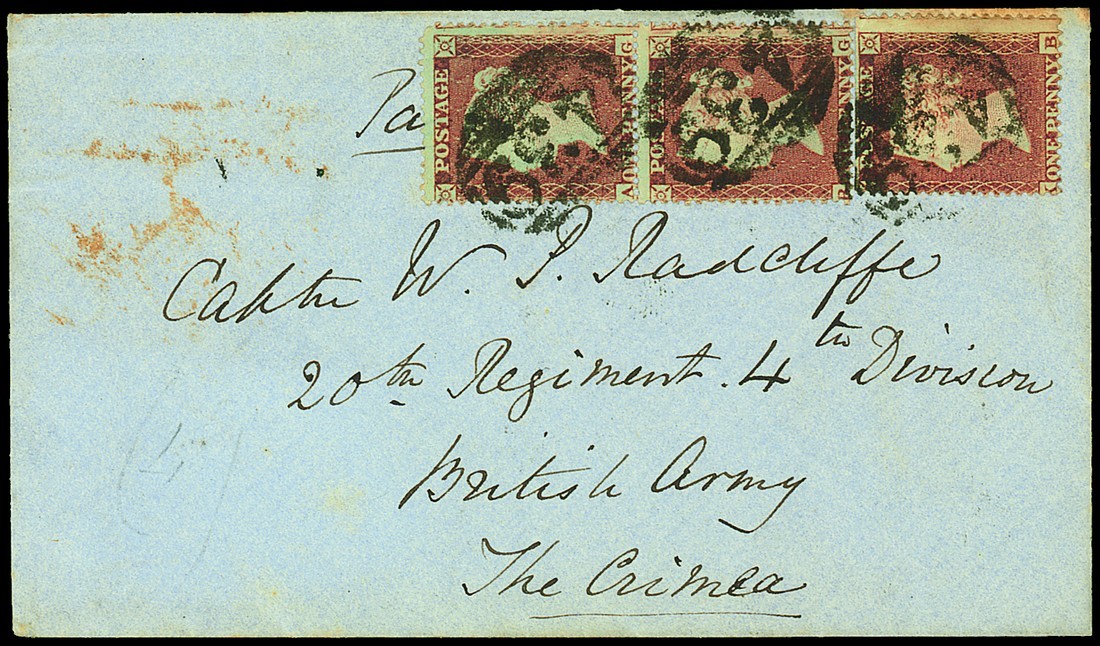 POSTAGE
ONE PENNY.
G
A
POSTAGE
PENNY.
G
POSTAGE
ONE PENNY.
B
Pa
Captn W. P. Radcliffe
20th Regiment. 4th Division
British Army
The Crimea
(4)